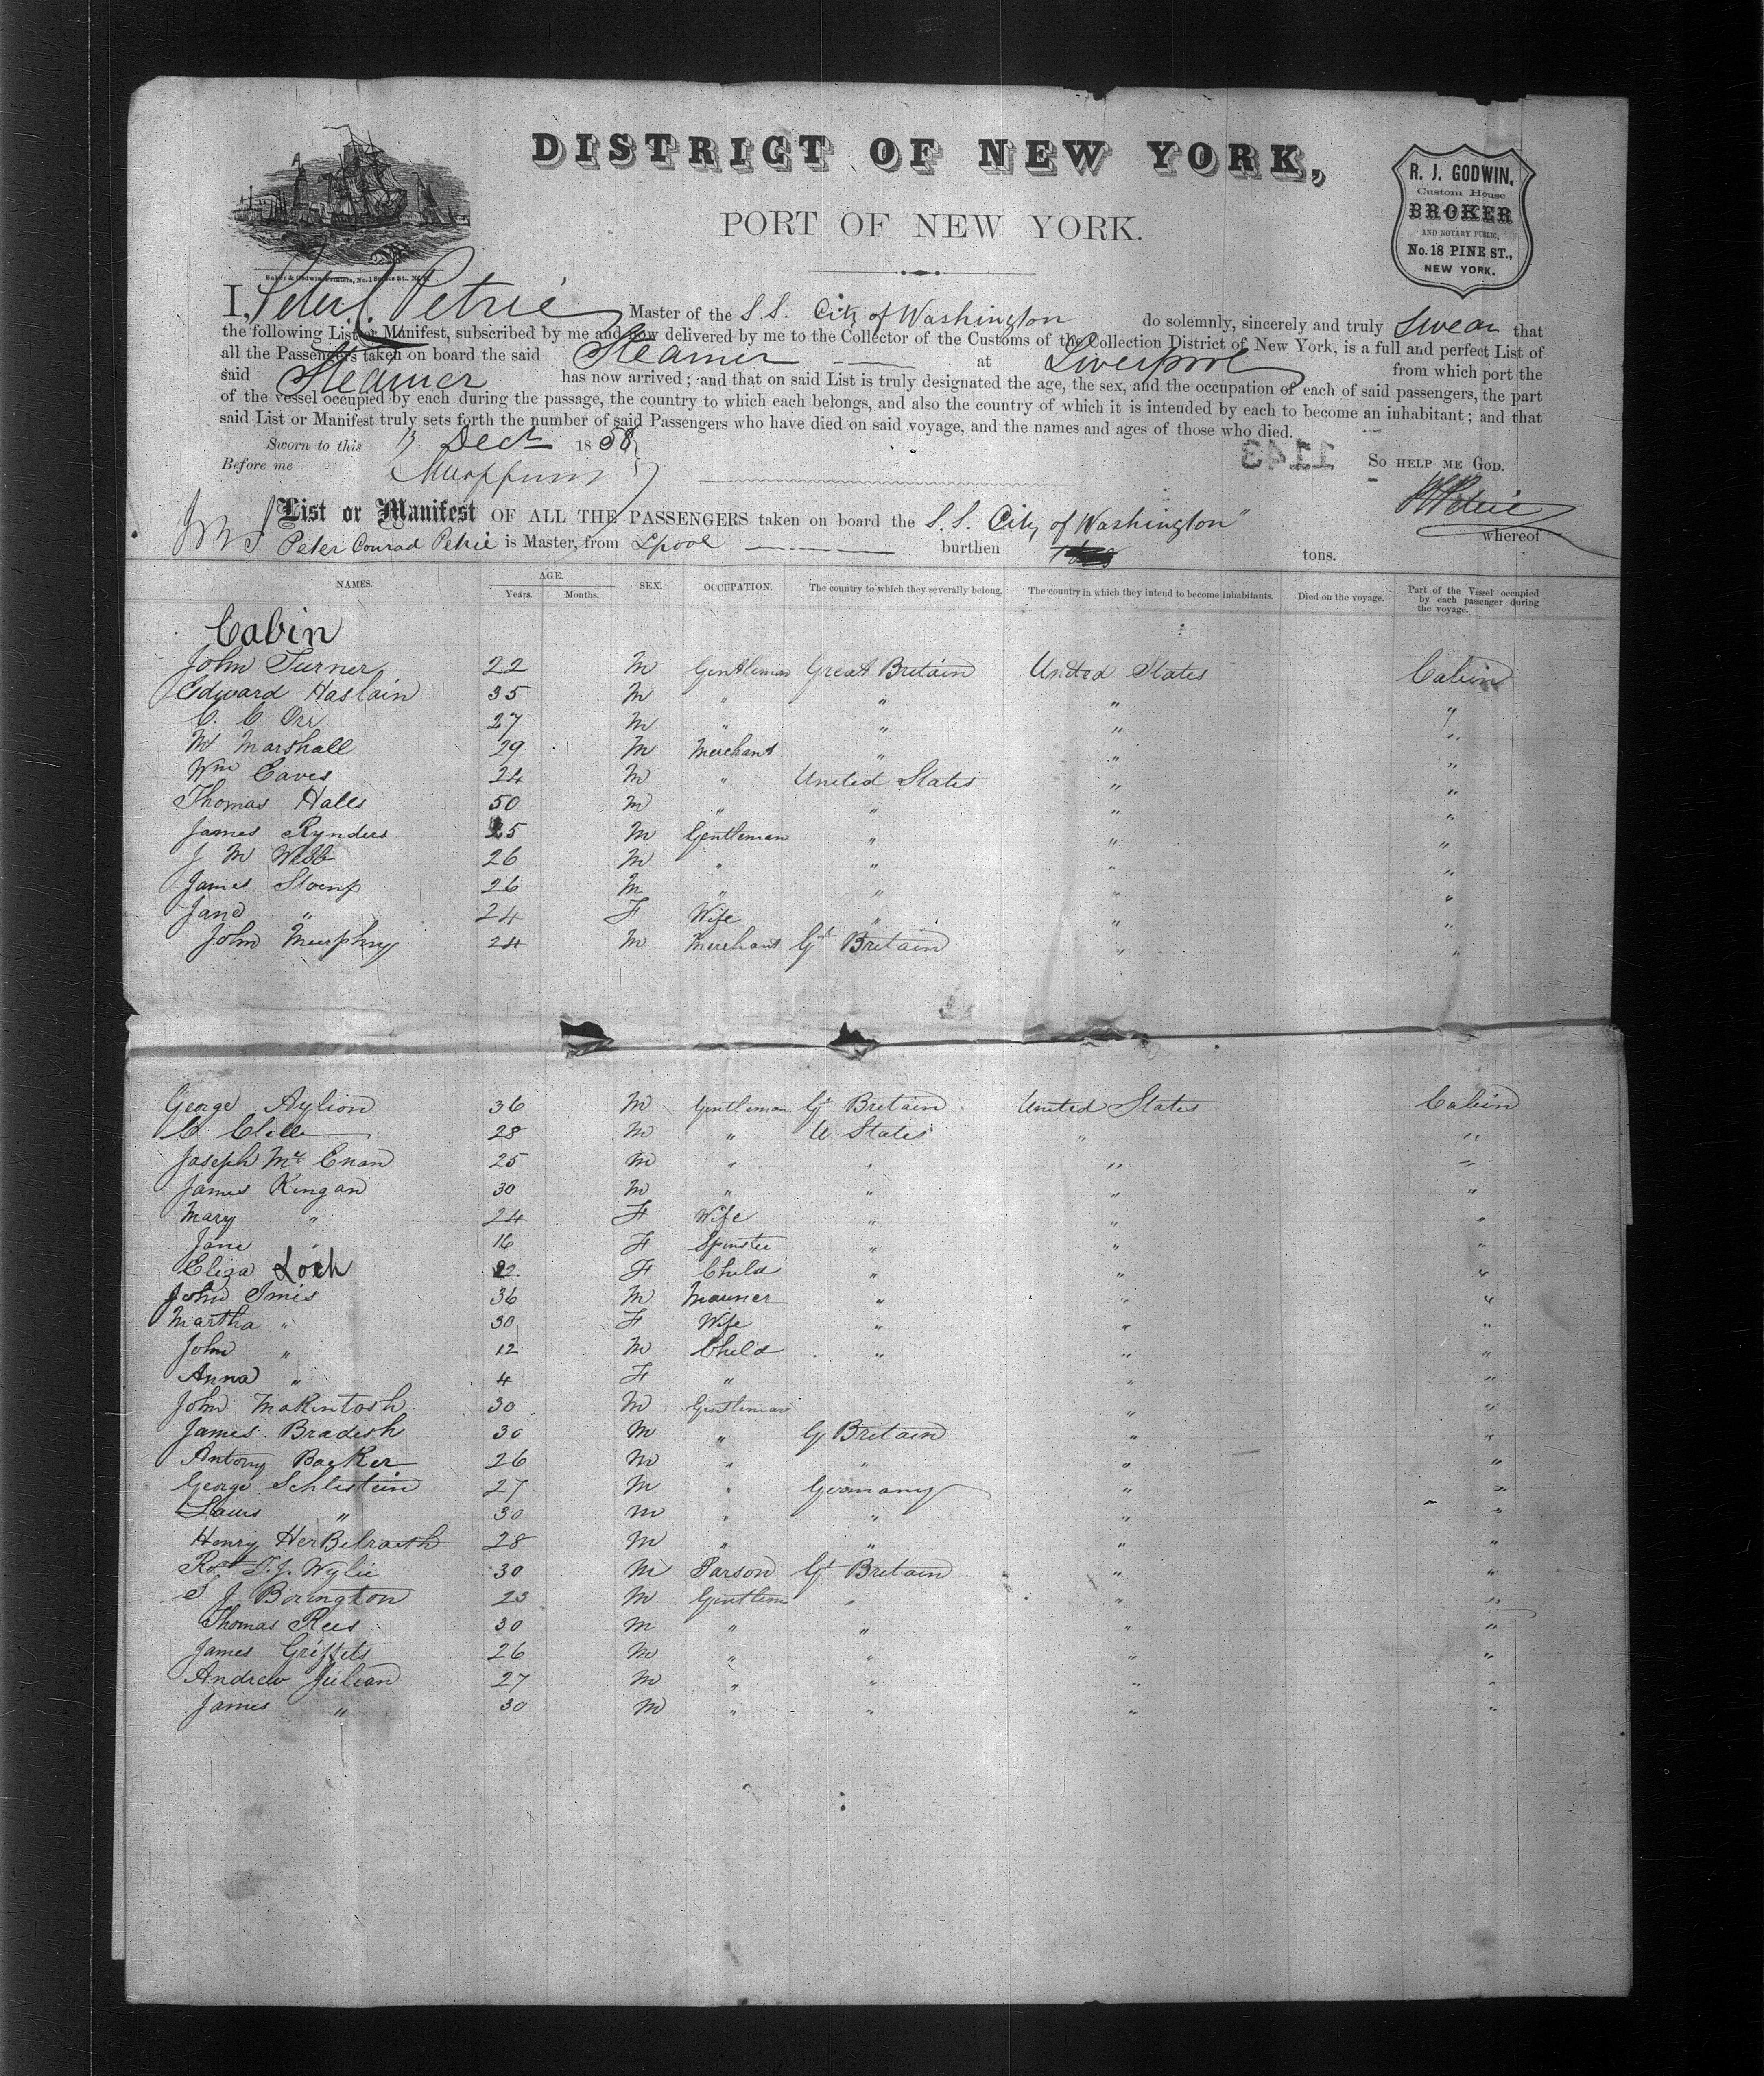 DISTRICT OF NEW YORK,
PORT OF NEW YORK.
R. J. GODWIN,
Custom House
BROKER
AND NOTARY PUBLIC,
No. 18 PINE ST.,
NEW YORK.
I, Peter C Petrie Master of the S.S. City of Washington do solemnly, sincerely and truly Swear that
the following List or Manifest, subscribed by me and now delivered by me to the Collector of the Customs of the Collection District of New York, is a full and perfect List of
all the Passengers taken on board the said Steamer at Liverpool from which port the
said Steamer has now arrived; and that on said List is truly designated the age, the sex, and the occupation of each of said passengers, the part
of the vessel occupied by each during the passage, the country to which each belongs, and also the country of which it is intended by each to become an inhabitant; and that
said List or Manifest truly sets forth the number of said Passengers who have died on said voyage, and the names and ages of those who died.
Sworn to this 13 Decr 1858
1143
So HELP ME GOD.
Before me
PCPetrie
List or Manifest OF ALL THE PASSENGERS taken on board the S.S. City of Washington" whereof
Peter Conrad Petrie is Master, from Lpool burthen tons.
NAMES. AGE. Years. Months. SEX. OCCUPATION. The country to which they severally belong. The country in which they intend to become inhabitants. Died on the voyage. Part of the Vessel occupied by each passenger during the voyage.
Cabin
John Turner 22 M Gentleman Great Britain United States Cabin
Edward Haslain 35 M " " " "
C. C Orr 27 M " " " "
Mr Marshall 29 M Merchant " " "
Wm Eaves 24 M " United States " "
Thomas Halls 50 M " " " "
James Rynders 25 M Gentleman " " "
J M Webb 26 M " " " "
James Stoenp 26 M " " " "
Jane " 24 F Wife " " "
John Murphy 24 M Merchant Gt Britain " "
George Aylion 36 M Gentleman Gt Britain United States Cabin
C 28 M " U States " "
Joseph Mc Enan 25 M " " " "
James Kingan 30 M " " " "
Mary " 24 F Wife " " "
Jane " 16 F Spinster " " "
Eliza Loch F Child " " "
John Imis 36 M Mariner " " "
Martha " 30 F Wife " " "
John " 12 M Child " " "
Anna " 4 F " " "
John Makintosh 30 M Gentleman " "
James Bradish 30 M " G Britain " "
Antony Backer 26 M " " " "
George Schlistein 27 M " Germany " "
Louis " 30 M " " " "
Henry HerBelrath 28 M " " " "
Revt T. J. Wylie 30 M Parson Gt Britain " "
S J Borington 23 M Gentlem " " "
Thomas Rees 30 M " " " "
James Griffets 26 M " " " "
Andrew Julian 27 M " " " "
James " 30 M " " " "